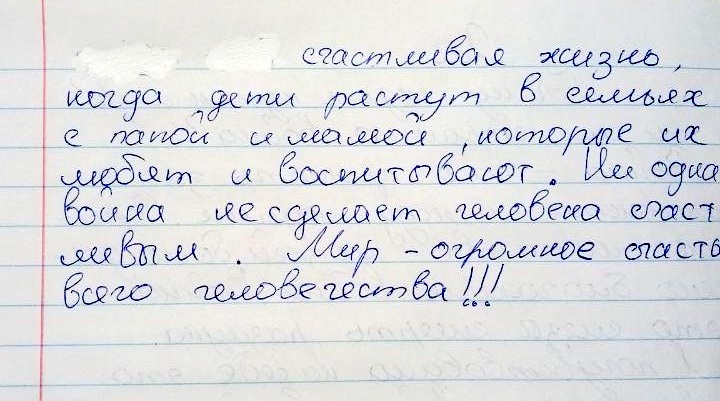 счастливая жизнь,
когда дети растут в семьях
с папой и мамой, которые их
любят и воспитывают. Ни одна
война не сделает человека счаст
ливым. Мир - огромное счасть
всего человечества!!!